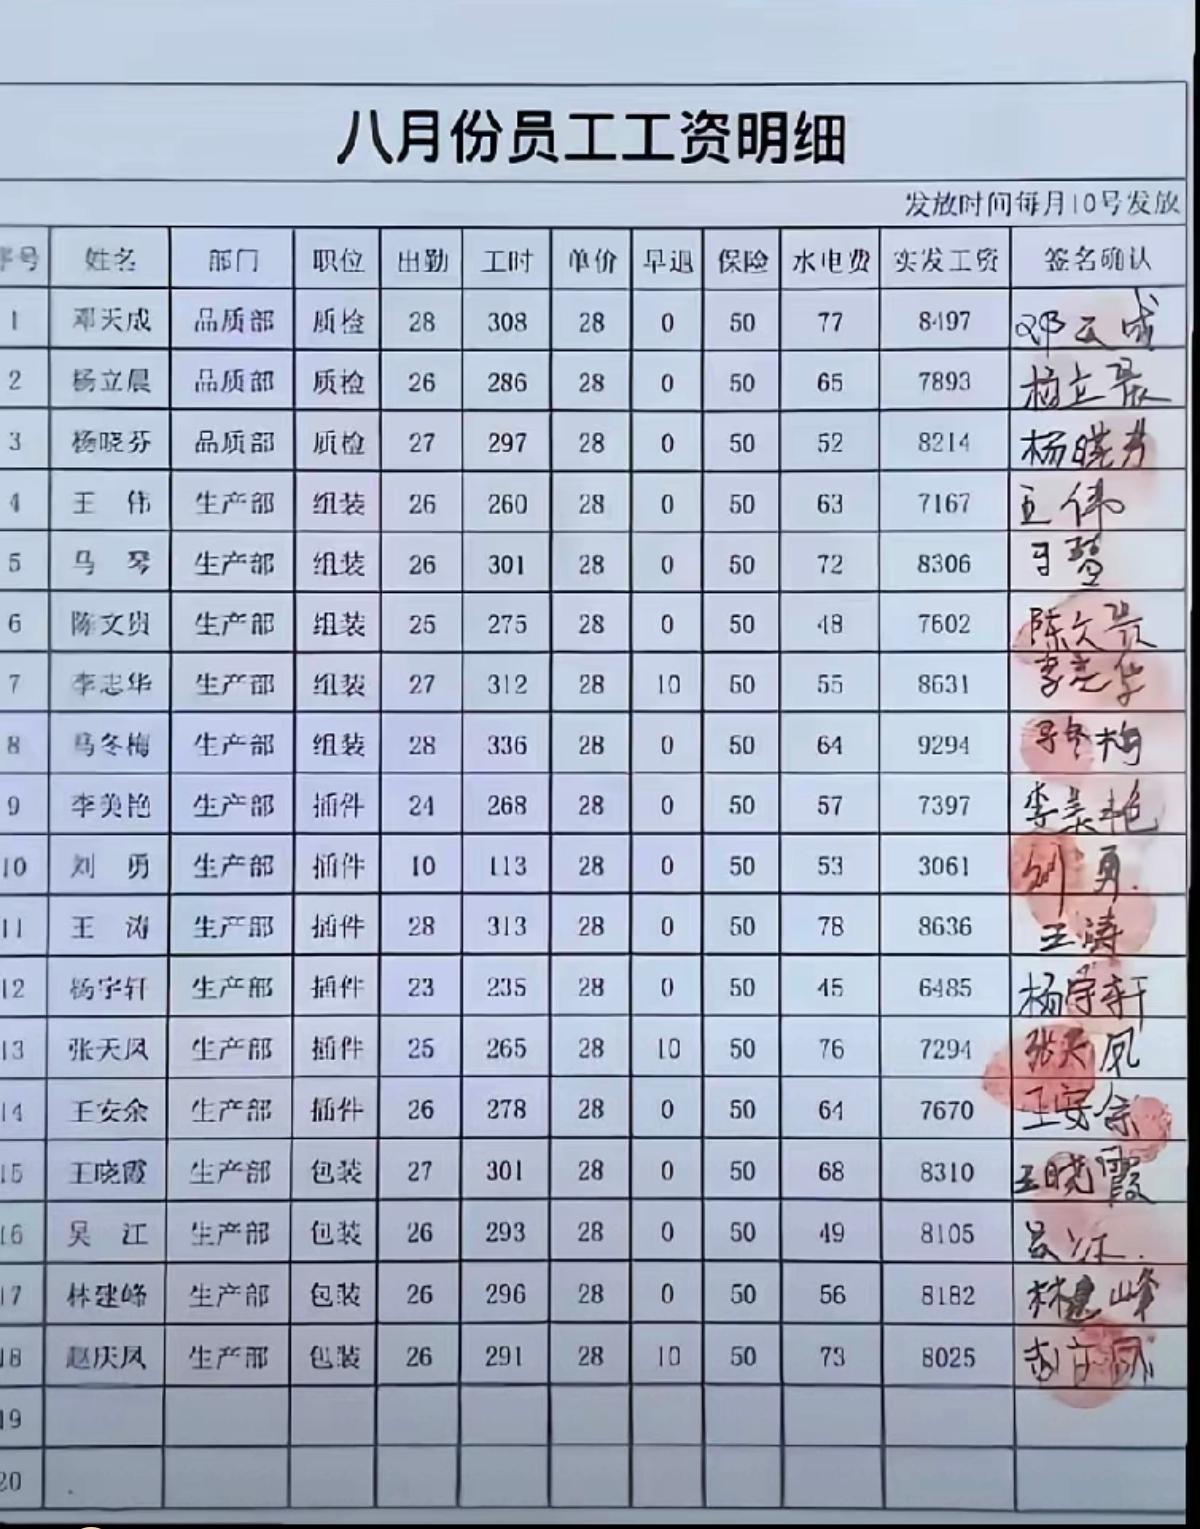 八月份员工工资明细
发放时间每月10号发放
序号 姓名 部门 职位 出勤 工时 单价 早退 保险 水电费 实发工资 签名确认
1 邓天成 品质部 质检 28 308 28 0 50 77 8497 邓天成
2 杨立晨 品质部 质检 26 286 28 0 50 65 7893 杨立晨
3 杨晓芬 品质部 质检 27 297 28 0 50 52 8214 杨晓芬
4 王 伟 生产部 组装 26 260 28 0 50 63 7167 王伟
5 马 琴 生产部 组装 26 301 28 0 50 72 8306 马琴
6 陈文贵 生产部 组装 25 275 28 0 50 48 7602 陈文贵
7 李志华 生产部 组装 27 312 28 10 50 55 8631 李志华
8 马冬梅 生产部 组装 28 336 28 0 50 64 9294 马冬梅
9 李美艳 生产部 插件 24 268 28 0 50 57 7397 李美艳
10 刘 勇 生产部 插件 10 113 28 0 50 53 3061 刘勇.
11 王 涛 生产部 插件 28 313 28 0 50 78 8636 王涛
12 杨宇轩 生产部 插件 23 235 28 0 50 45 6485 杨宇轩
13 张天凤 生产部 插件 25 265 28 10 50 76 7294 张天凤
14 王安余 生产部 插件 26 278 28 0 50 64 7670 王安余
15 王晓霞 生产部 包装 27 301 28 0 50 68 8310 王晓霞
16 吴 江 生产部 包装 26 293 28 0 50 49 8105 吴江.
17 林建峰 生产部 包装 26 296 28 0 50 56 8182 林建峰
18 赵庆凤 生产部 包装 26 291 28 10 50 73 8025 赵庆凤
19
20